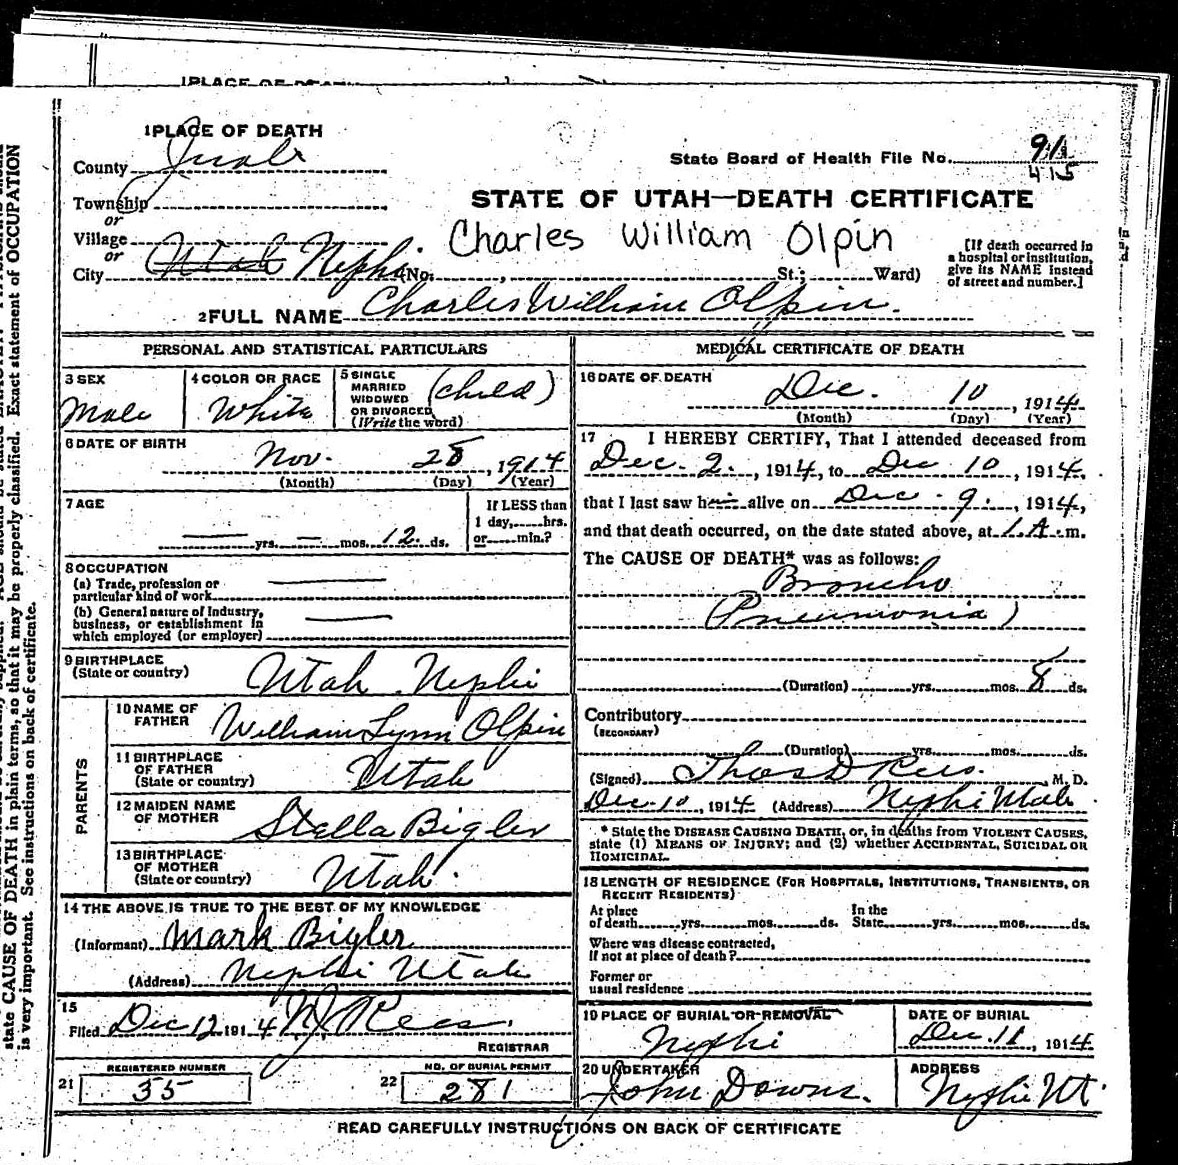 1 PLACE OF DEATH
County Juab
State Board of Health File No. 91
415
Township
or
Village
or
City Utah Nephi (No. , St.; Ward)
STATE OF UTAH—DEATH CERTIFICATE
Charles William Olpin
[If death occurred in
a hospital or institution,
give its NAME instead
of street and number.]
2 FULL NAME Charles William Olpin.
PERSONAL AND STATISTICAL PARTICULARS
3 SEX
Male
4 COLOR OR RACE
White
5 SINGLE
MARRIED
WIDOWED
OR DIVORCED
(Write the word)
(child)
6 DATE OF BIRTH
Nov. 28, 1914
(Month) (Day) (Year)
7 AGE
— yrs. — mos. 12 ds.
If LESS than
1 day, hrs.
or min.?
8 OCCUPATION
(a) Trade, profession or
particular kind of work
(b) General nature of Industry,
business, or establishment in
which employed (or employer)
9 BIRTHPLACE
(State or country)
Utah Nephi
PARENTS
10 NAME OF
FATHER
William Lynn Olpin
11 BIRTHPLACE
OF FATHER
(State or country)
Utah
12 MAIDEN NAME
OF MOTHER
Stella Bigler
13 BIRTHPLACE
OF MOTHER
(State or country)
Utah.
14 THE ABOVE IS TRUE TO THE BEST OF MY KNOWLEDGE
(Informant) Mark Bigler
(Address) Nephi Utah
15
Filed Dec 12 1914 Rees.
REGISTRAR
REGISTERED NUMBER
21 35
NO. OF BURIAL PERMIT
22 281
MEDICAL CERTIFICATE OF DEATH
16 DATE OF DEATH
Dec. 10, 1914
(Month) (Day) (Year)
17 I HEREBY CERTIFY, That I attended deceased from
Dec. 2., 1914, to Dec 10, 1914,
that I last saw him alive on Dec. 9., 1914,
and that death occurred, on the date stated above, at 1.A.m.
The CAUSE OF DEATH* was as follows:
Broncho
(Pneumonia)
(Duration) yrs. mos. 8 ds.
Contributory
(SECONDARY)
(Duration) yrs. mos. ds.
(Signed) Thos D Rees. M. D.
Dec. 10, 1914 (Address) Nephi Utah
* State the DISEASE CAUSING DEATH, or, in deaths from VIOLENT CAUSES,
state (1) MEANS OF INJURY; and (2) whether ACCIDENTAL, SUICIDAL OR
HOMICIDAL.
18 LENGTH OF RESIDENCE (FOR HOSPITALS, INSTITUTIONS, TRANSIENTS, OR
RECENT RESIDENTS)
At place
of death yrs. mos. ds.
In the
State yrs. mos. ds.
Where was disease contracted,
if not at place of death?
Former or
usual residence
19 PLACE OF BURIAL OR REMOVAL
Nephi
DATE OF BURIAL
Dec. 11, 1914
20 UNDERTAKER
John Downs.
ADDRESS
Nephi Ut.
READ CAREFULLY INSTRUCTIONS ON BACK OF CERTIFICATE
state CAUSE OF DEATH in plain terms, so that it may be properly classified. Exact statement of OCCUPATION
is very important. See instructions on back of certificate.